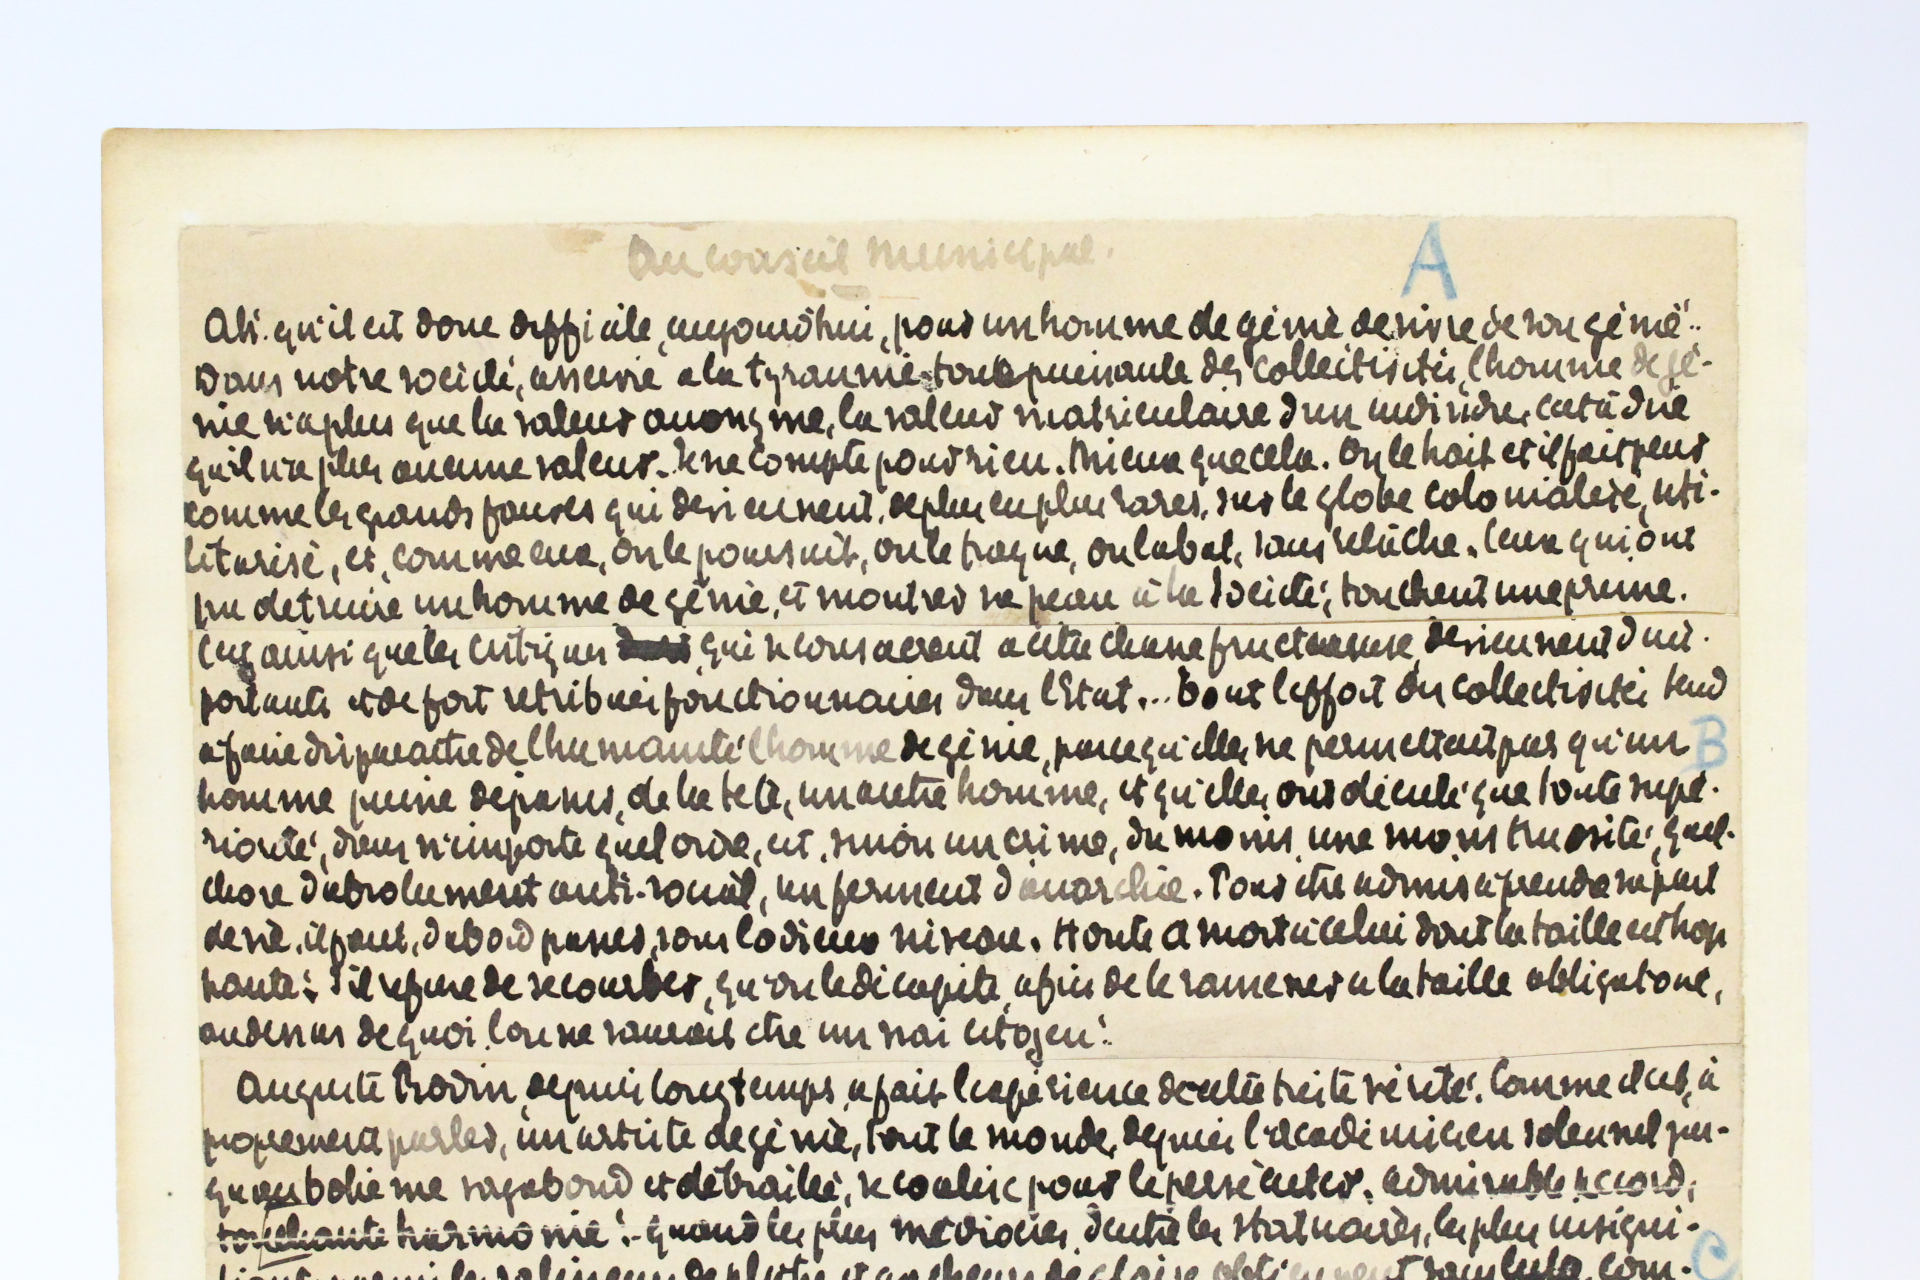 Au conseil municipal.
A
Ah! qu'il est donc difficile, aujourd'hui, pour un homme de génie de vivre de son génie!..
Dans notre société, asservie à la tyrannie toute puissante des collectivités, l'homme de gé-
nie n'a plus que la valeur anonyme, la valeur matriculaire d'un individu, c'est à dire
qu'il n'a plus aucune valeur. Il ne compte pour rien. Mieux que cela. On le hait et il fait peur
comme les grands fauves qui deviennent, de plus en plus rares, sur le globe colonialisé, uti-
litarisé, et, comme eux, on le poursuit, on le traque, on l'abat, sans relâche. Ceux qui ont
pu détruire un homme de génie, et montrer sa peau à la Société, touchent une prime.
C'est ainsi que les critiques qui se consacrent à cette chasse fructueuse, deviennent d'im-
portants et de fort rétribués fonctionnaires dans l'Etat... Tout l'effort des collectivités tend
à faire disparaître de l'humanité l'homme de génie, parce qu'elles ne permettent pas qu'un
B
homme puisse dépasser, de la tête, un autre homme, et qu'elles ont décidé que toute supé-
riorité, dans n'importe quel ordre, est, sinon un crime, du moins, une monstruosité, quel-
chose d'absolument anti-social, un ferment d'anarchie. Pour être admis à prendre sa part
de vie, il faut, d'abord passer, sous l'odieux niveau. Honte et mort à celui dont la taille est trop
haute! S'il refuse de se courber, qu'on le décapite, afin de le ramener à la taille obligatoire,
au dessus de quoi l'on ne saurait être un vrai citoyen!
Auguste Rodin, depuis longtemps, a fait l'expérience de cette triste vérité. Comme il est, à
proprement parler, un artiste de génie, tout le monde, depuis l'académicien solennel jus-
qu'au bohème vagabond et débraillé, se coalise pour le persécuter. Admirable accord,
touchante harmonie! Quand les plus médiocres, d'entre les statuaires, les plus insigni-
C
fiants parmi les de plâtre et de gloire obtiennent sans lutte, com-